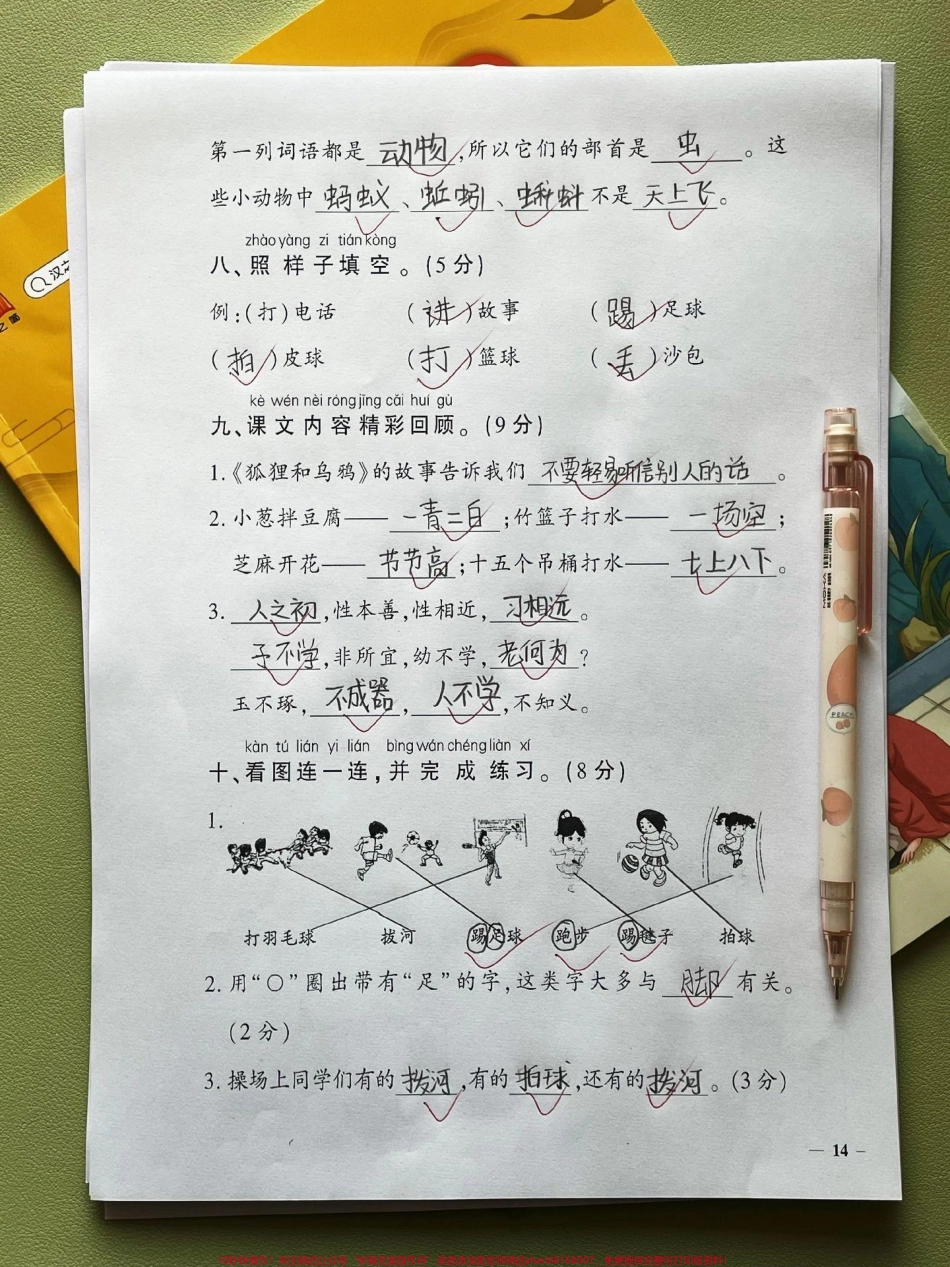 第一列词语都是 动物 ,所以它们的部首是 虫 。这
些小动物中 蚂蚁 、 蚯蚓 、 蝌蚪 不是 天上飞 。
zhào yàng zi tián kòng
八、照样子填空。(5分)
例:(打)电话 (讲)故事 (踢)足球
(拍)皮球 (打)篮球 (丢)沙包
kè wén nèi róng jīng cǎi huí gù
九、课文内容精彩回顾。(9分)
1.《狐狸和乌鸦》的故事告诉我们 不要轻易听信别人的话 。
2. 小葱拌豆腐—— 一青二白 ;竹篮子打水—— 一场空 ;
芝麻开花—— 节节高 ;十五个吊桶打水—— 七上八下 。
3. 人之初 ,性本善,性相近, 习相远 。
子不学 ,非所宜,幼不学, 老何为 ?
玉不琢, 不成器 , 人不学 ,不知义。
kàn tú lián yi lián bìng wán chéng liàn xí
十、看图连一连,并完成练习。(8分)
1.
打羽毛球 拔河 踢足球 跑步 踢毽子 拍球
2. 用“○”圈出带有“足”的字,这类字大多与 脚 有关。
(2分)
3. 操场上同学们有的 拨河 ,有的 拍球 ,还有的 拨河 。(3分)
— 14 –
PEACH